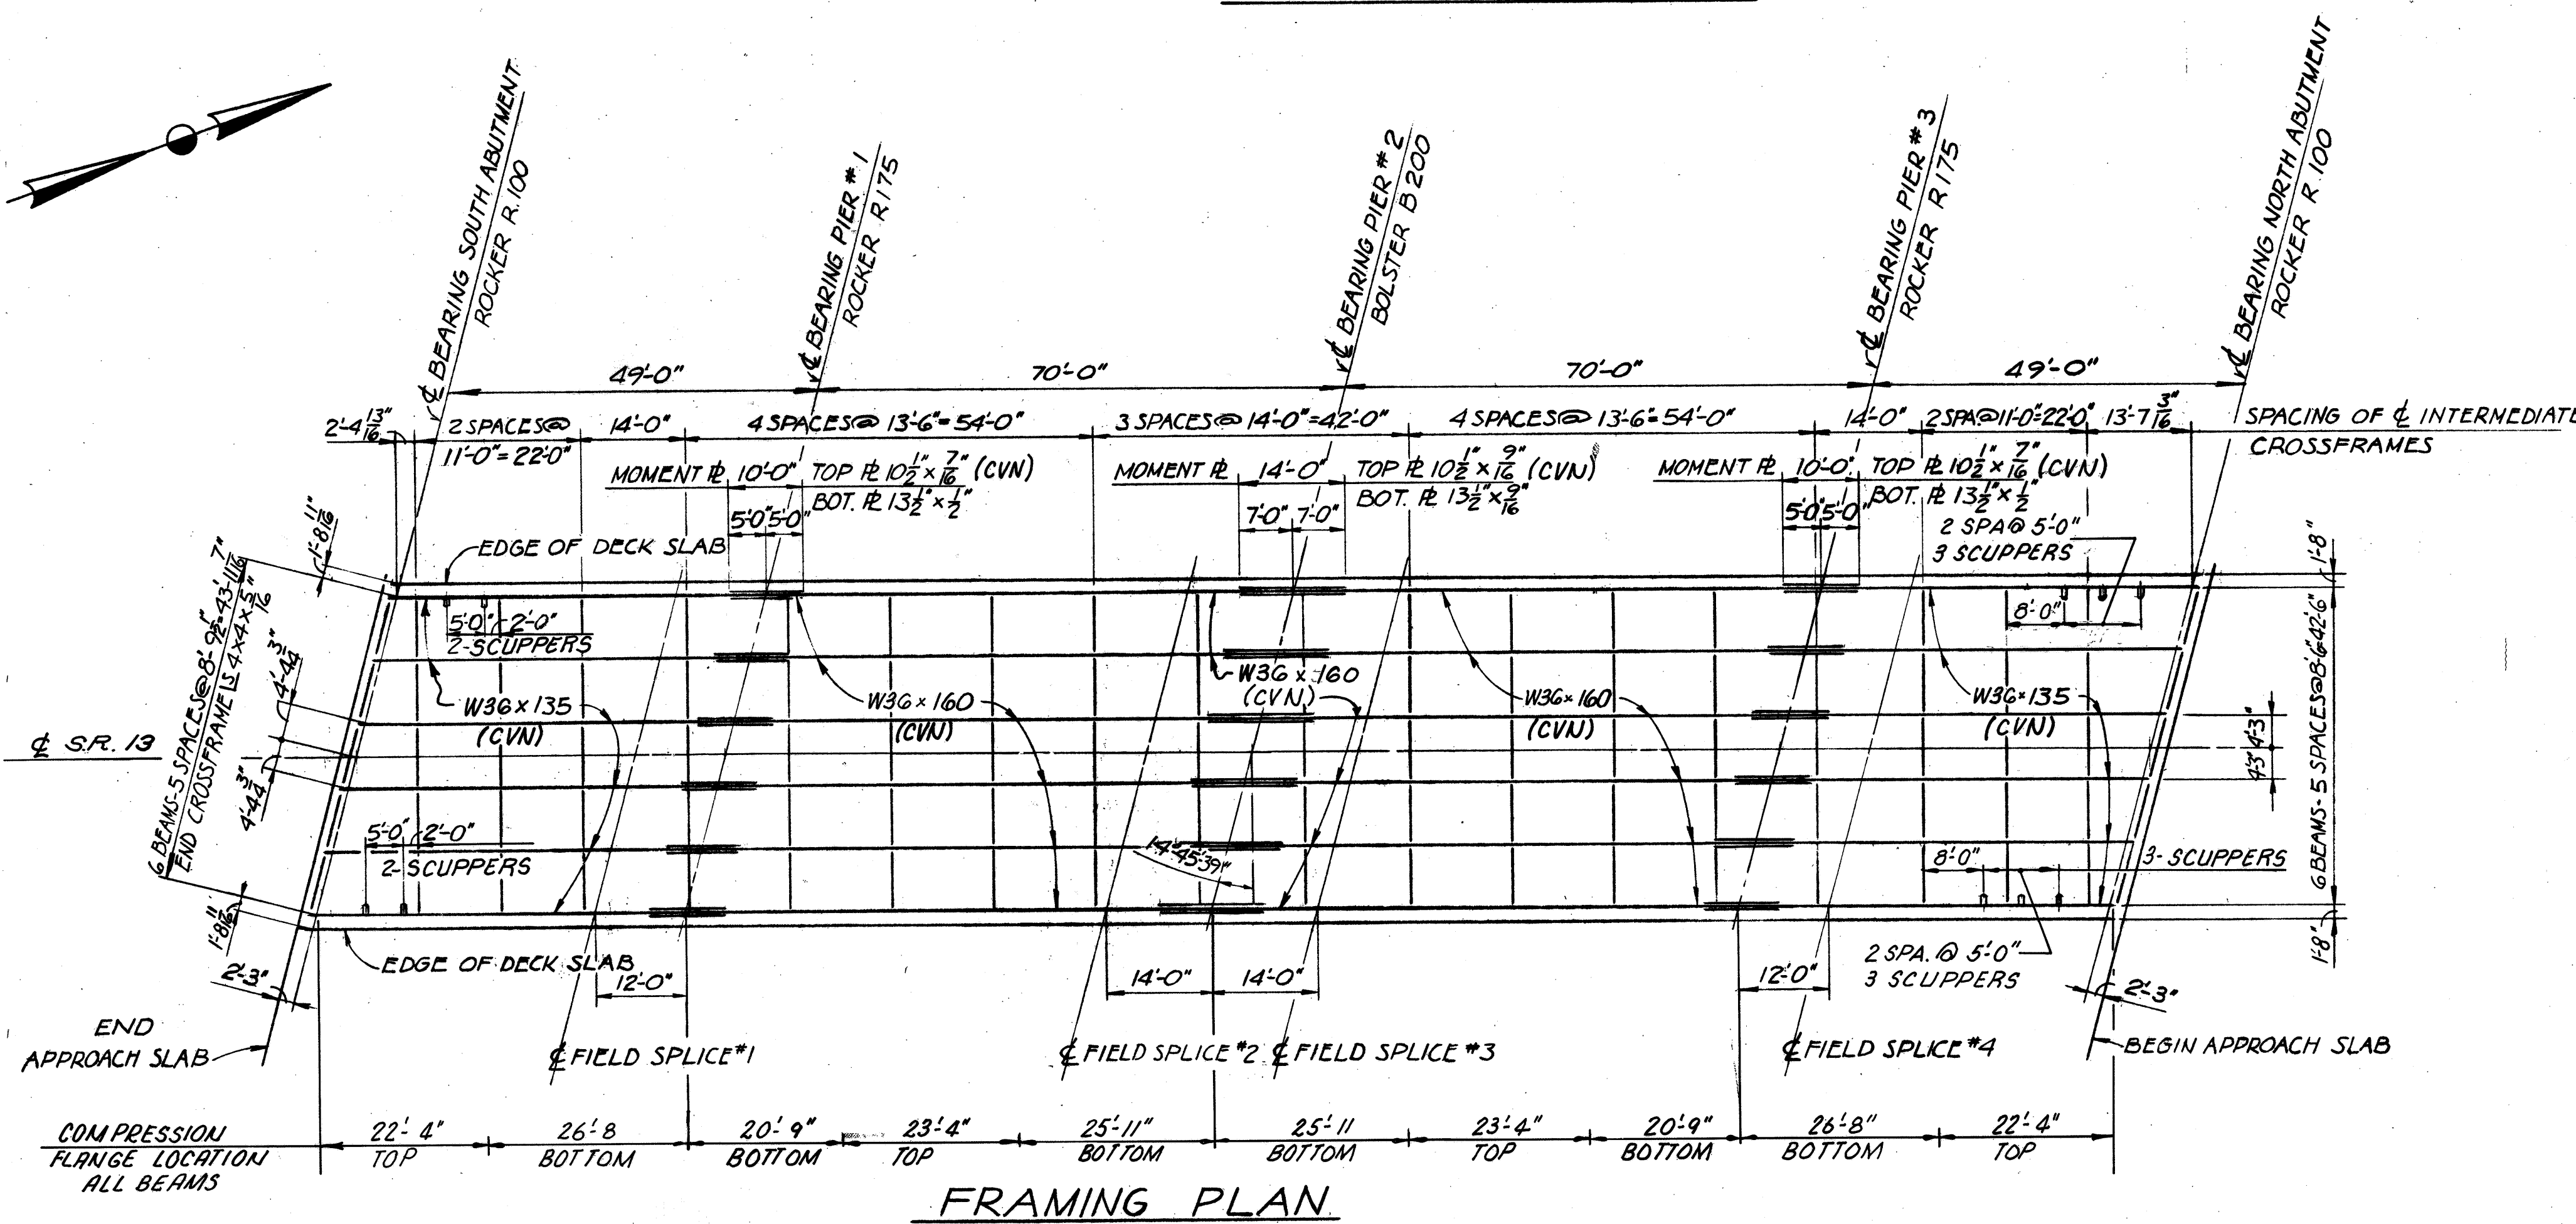 ℄ BEARING SOUTH ABUTMENT
ROCKER R.100
℄ BEARING PIER #1
ROCKER R175
℄ BEARING PIER #2
BOLSTER B200
℄ BEARING PIER #3
ROCKER R175
℄ BEARING NORTH ABUTMENT
ROCKER R.100
49'-0"
70'-0"
70'-0"
49'-0"
2'-4 13/16"
2 SPACES@
11'-0"=22'-0"
14'-0"
4 SPACES@ 13'-6"=54'-0"
3 SPACES@ 14'-0"=42'-0"
4 SPACES@ 13'-6"=54'-0"
14'-0"
2 SPA@11'-0"=22'-0"
13'-7 3/16"
SPACING OF ℄ INTERMEDIATE
CROSSFRAMES
MOMENT PL 10'-0" TOP PL 10 1/2" x 7/16" (CVN)
BOT. PL 13 1/2" x 1/2"
5'-0" 5'-0"
MOMENT PL 14'-0" TOP PL 10 1/2" x 9/16" (CVN)
BOT. PL 13 1/2" x 9/16"
7'-0" 7'-0"
MOMENT PL 10'-0" TOP PL 10 1/2" x 7/16" (CVN)
BOT. PL 13 1/2" x 1/2"
5'-0" 5'-0"
2 SPA@ 5'-0"
3 SCUPPERS
1'-8 11/16"
EDGE OF DECK SLAB
1'-8"
5'-0" 2'-0"
2-SCUPPERS
8'-0"
6 BEAMS-5 SPACES@8'-9 1/2"=43'-11 7/16"
END CROSSFRAME LS 4x4x5/16"
4'-4 3/4"
4'-4 3/4"
W36x135
(CVN)
W36x160
(CVN)
W36x160
(CVN)
W36x160
(CVN)
W36x135
(CVN)
℄ S.R. 13
4'-3"
4'-3"
6 BEAMS-5 SPACES@8'-6"=42'-6"
5'-0" 2'-0"
2-SCUPPERS
14°-45'-39"
8'-0"
3-SCUPPERS
1'-8 11/16"
EDGE OF DECK SLAB
2'-3"
12'-0"
14'-0"
14'-0"
12'-0"
2 SPA.@ 5'-0"
3 SCUPPERS
1'-8"
2'-3"
END
APPROACH SLAB
℄ FIELD SPLICE #1
℄ FIELD SPLICE #2
℄ FIELD SPLICE #3
℄ FIELD SPLICE #4
BEGIN APPROACH SLAB
COMPRESSION
FLANGE LOCATION
ALL BEAMS
22'-4" 26'-8 20'-9" 23'-4" 25'-11" 25'-11 23'-4" 20'-9" 26'-8" 22'-4"
TOP BOTTOM BOTTOM TOP BOTTOM BOTTOM TOP BOTTOM BOTTOM TOP
FRAMING PLAN